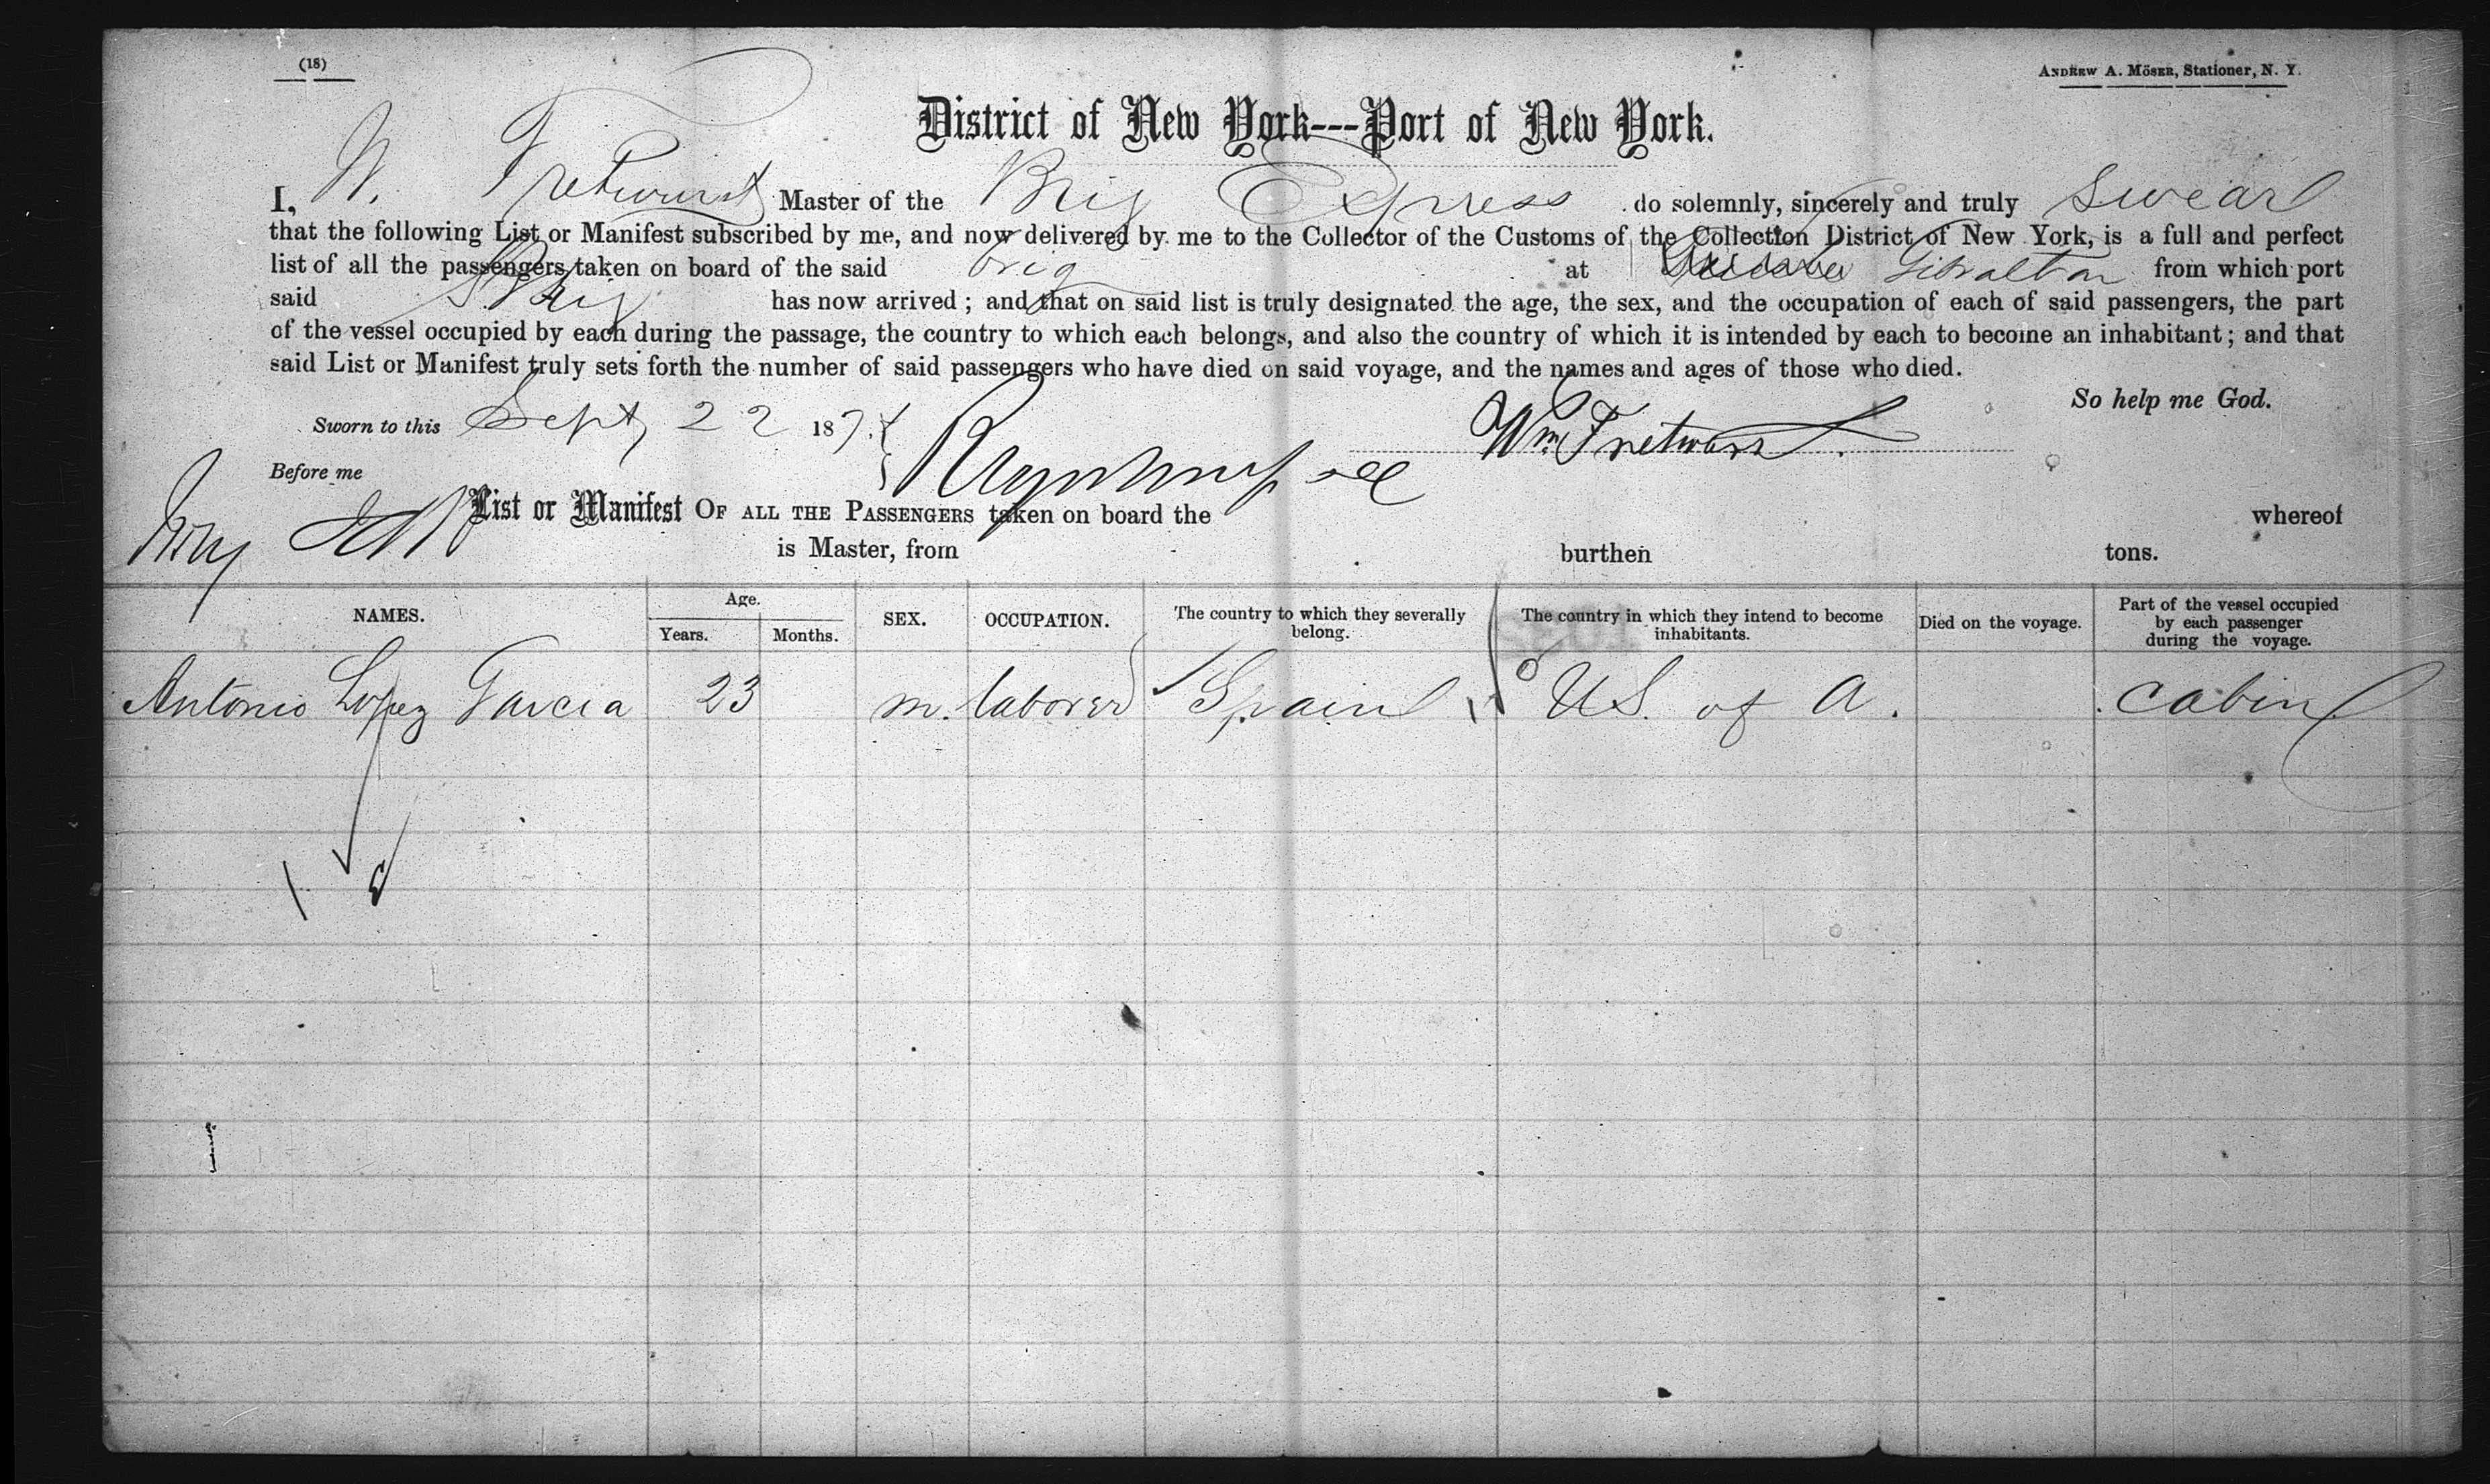 (18)
ANDREW A. MÖSER, Stationer, N. Y.
District of New York---Port of New York.
I, W. Fretwurst Master of the Brig Express do solemnly, sincerely and truly swear
that the following List or Manifest subscribed by me, and now delivered by me to the Collector of the Customs of the Collection District of New York, is a full and perfect
list of all the passengers taken on board of the said brig at Gibraltar from which port
said Brig has now arrived; and that on said list is truly designated the age, the sex, and the occupation of each of said passengers, the part
of the vessel occupied by each during the passage, the country to which each belongs, and also the country of which it is intended by each to become an inhabitant; and that
said List or Manifest truly sets forth the number of said passengers who have died on said voyage, and the names and ages of those who died.
So help me God.
Sworn to this Sept 22 187 Wm Fretwurst
Before me
List or Manifest OF ALL THE PASSENGERS taken on board the whereof
is Master, from burthen tons.
NAMES. Age. Years. Months. SEX. OCCUPATION. The country to which they severally belong. The country in which they intend to become inhabitants. Died on the voyage. Part of the vessel occupied by each passenger during the voyage.
Antonio Lopez Garcia 23 m. laborer Spain U.S. of A. cabin